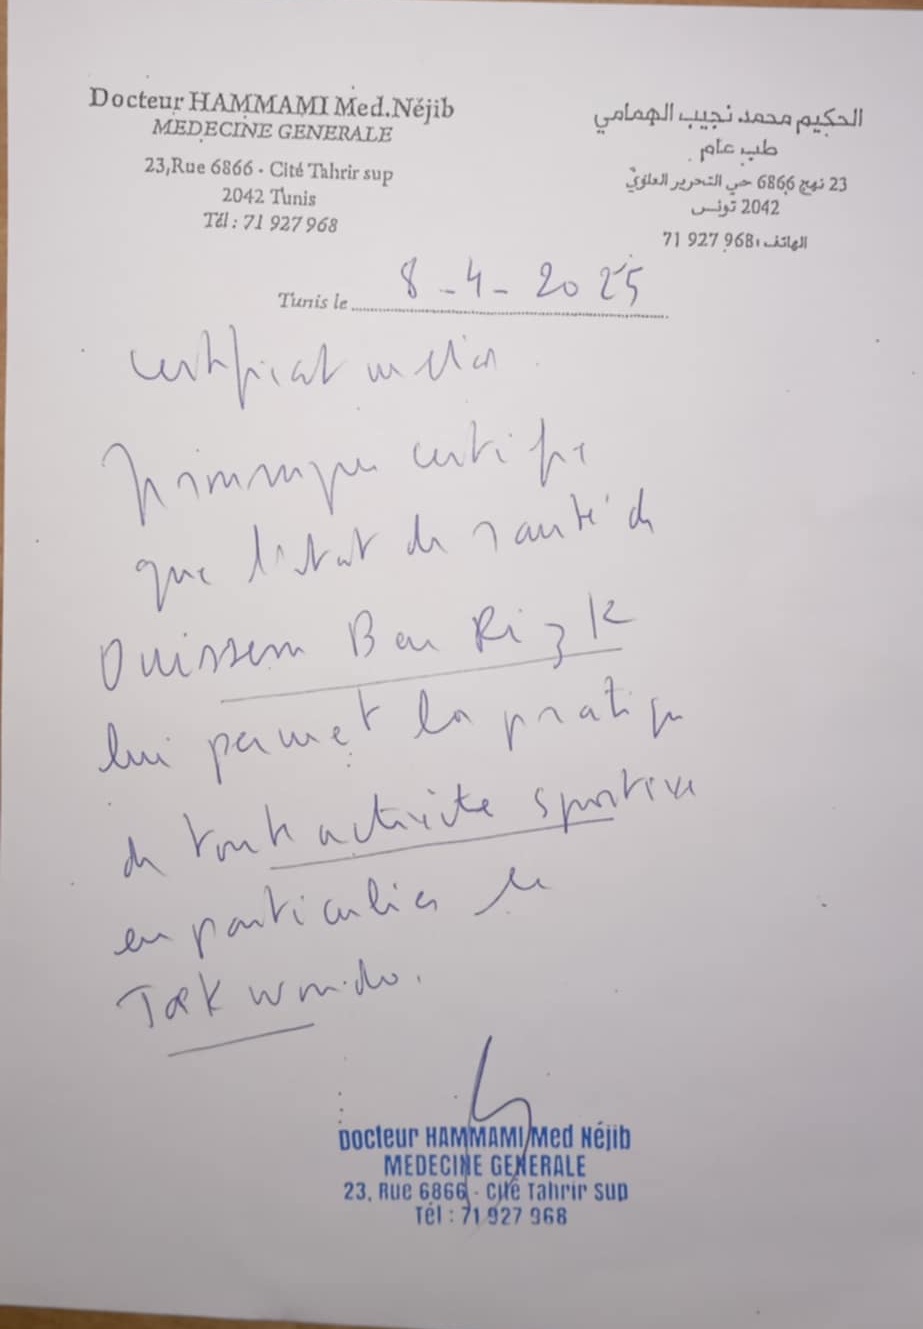 Docteur HAMMAMI Med.Néjib
MEDECINE GENERALE
23,Rue 6866 - Cité Tahrir sup
2042 Tunis
Tél : 71 927 968
الحكيم محمد نجيب الهمامي
طب عام
23 نهج 6866 حي التحرير العلوي
2042 تونس
الهاتف : 71 927 968
Tunis le 8-4-2025
Certificat médical
certifie
que l'état de santé de
Ouissem Ben Rizk
lui permet la pratique
de toute activité sportive
en particulier le
Taekwondo.
Docteur HAMMAMI Med Néjib
MEDECINE GENERALE
23, Rue 6866 - Cité Tahrir sup
Tél : 71 927 968